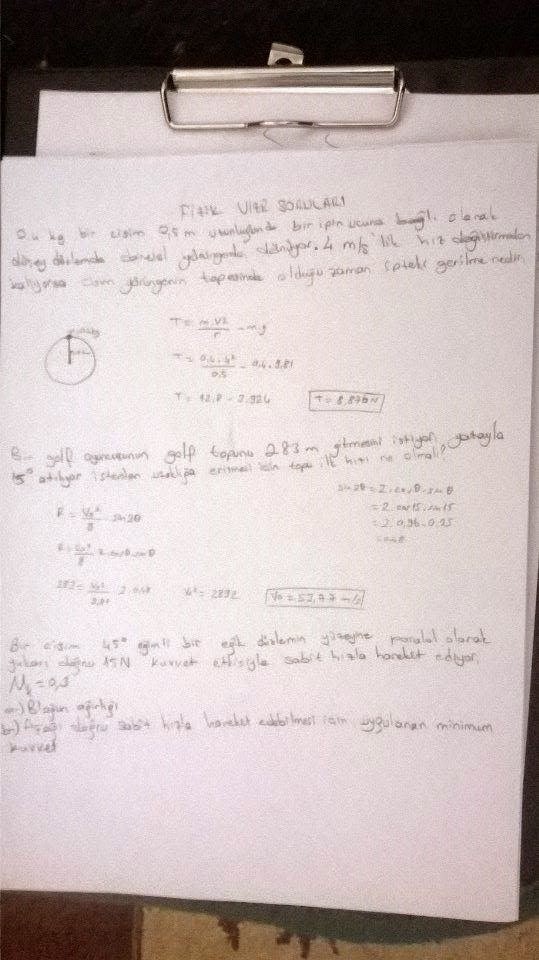 FİZİK VİZE SORULARI
0,4 kg bir cisim 0,5 m uzunluğunda bir ipin ucuna bağlı olarak
düşey düzlemde dairesel yörüngede dönüyor. 4 m/s'lik hız değiştirmeden
kalıyorsa cisim yörüngenin tepesinde olduğu zaman ipteki gerilme nedir
T = m.V² / r - m.g
T = 0,4.4² / 0,5 - 0,4.9,81
T = 12,8 - 3,924
T = 8,876 N
Bir golf oyuncusunun golf topunu 283 m gitmesini istiyor, yatayla
15° atılıyor istenilen uzaklığa erişmesi için topu ilk hızı ne olmalı?
sin2θ = 2.cosθ.sinθ
= 2.cos15.sin15
= 2.0,96.0,25
R = V₀² / g . sin2θ
R = V₀² / g 2.sinθ.cosθ
283 = V₀² / 9,81 2
V₀ = 53,77 m/s
Bir cisim 45° eğimli bir eğik düzlemin yüzeyine paralel olarak
yukarı doğru 15N kuvvet etkisiyle sabit hızla hareket ediyor.
a-) Bloğun ağırlığı
b-) Aşağı doğru sabit hızla hareket edebilmesi için uygulanan minimum
kuvvet